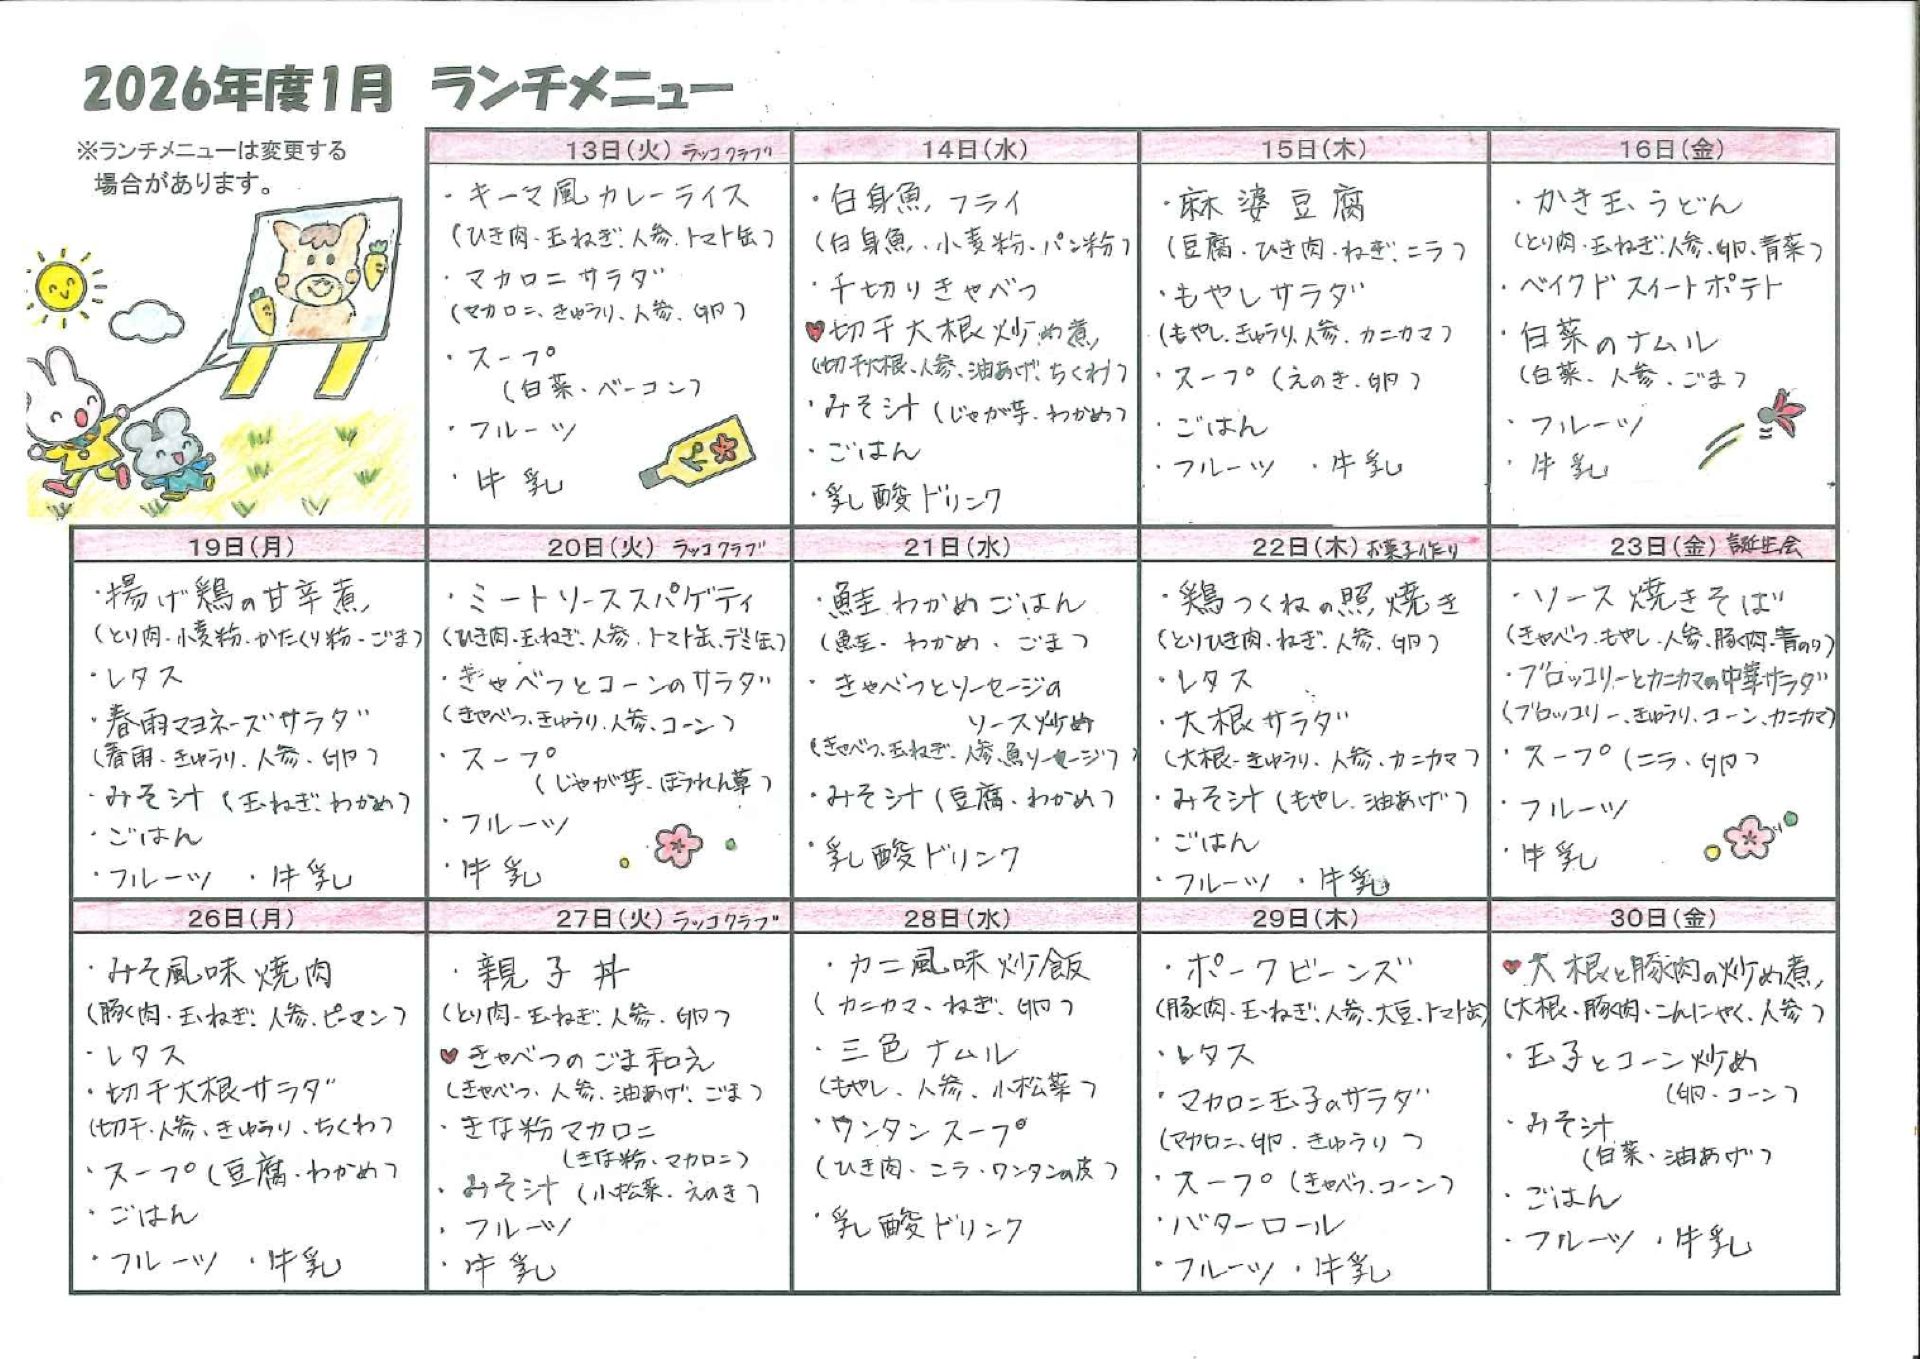 2026年度1月 ランチメニュー
※ランチメニューは変更する
場合があります。
13日(火) ラッコクラブ
・キーマ風カレーライス
(ひき肉・玉ねぎ・人参・トマト缶)
・マカロニサラダ
(マカロニ、きゅうり、人参、卵)
・スープ
(白菜・ベーコン)
・フルーツ
・牛乳
14日(水)
・白身魚フライ
(白身魚・小麦粉・パン粉)
・千切りきゃべつ
♥切干大根炒め煮
(切干大根、人参、油あげ、ちくわ)
・みそ汁(じゃが芋・わかめ)
・ごはん
・乳酸ドリンク
15日(木)
・麻婆豆腐
(豆腐・ひき肉・ねぎ・ニラ)
・もやしサラダ
(もやし、きゅうり、人参、カニカマ)
・スープ(えのき・卵)
・ごはん
・フルーツ ・牛乳
16日(金)
・かき玉うどん
(とり肉・玉ねぎ・人参・卵・青菜)
・ベイクドスイートポテト
・白菜のナムル
(白菜、人参、ごま)
・フルーツ
・牛乳
19日(月)
・揚げ鶏の甘辛煮
(とり肉・小麦粉・かたくり粉・ごま)
・レタス
・春雨マヨネーズサラダ
(春雨・きゅうり、人参・卵)
・みそ汁(玉ねぎ、わかめ)
・ごはん
・フルーツ ・牛乳
20日(火) ラッコクラブ
・ミートソーススパゲティ
(ひき肉・玉ねぎ、人参、トマト缶、デミ缶)
・きゃべつとコーンのサラダ
(きゃべつ、きゅうり、人参、コーン)
・スープ
(じゃが芋・ほうれん草)
・フルーツ
・牛乳
21日(水)
・鮭わかめごはん
(鮭・わかめ・ごま)
・きゃべつとソーセージの
ソース炒め
(きゃべつ、玉ねぎ、人参、魚ソーセージ)
・みそ汁(豆腐・わかめ)
・乳酸ドリンク
22日(木) お菓子作り
・鶏つくねの照り焼き
(とりひき肉・ねぎ・人参、卵)
・レタス
・大根サラダ
(大根・きゅうり、人参、カニカマ)
・みそ汁(もやし、油あげ)
・ごはん
・フルーツ ・牛乳
23日(金) 誕生会
・ソース焼きそば
(きゃべつ、もやし、人参、豚肉・青のり)
・ブロッコリーとカニカマの中華サラダ
(ブロッコリー、きゅうり、コーン、カニカマ)
・スープ(ニラ、卵)
・フルーツ
・牛乳
26日(月)
・みそ風味焼肉
(豚肉・玉ねぎ、人参、ピーマン)
・レタス
・切干大根サラダ
(切干・人参、きゅうり、ちくわ)
・スープ(豆腐・わかめ)
・ごはん
・フルーツ ・牛乳
27日(火) ラッコクラブ
・親子丼
(とり肉・玉ねぎ、人参・卵)
♥きゃべつのごま和え
(きゃべつ、人参、油あげ、ごま)
・きな粉マカロニ
(きな粉・マカロニ)
・みそ汁(小松菜・えのき)
・フルーツ
・牛乳
28日(水)
・カニ風味炒飯
(カニカマ、ねぎ、卵)
・三色ナムル
(もやし、人参、小松菜)
・ワンタンスープ
(ひき肉・ニラ・ワンタンの皮)
・乳酸ドリンク
29日(木)
・ポークビーンズ
(豚肉・玉ねぎ、人参、大豆、トマト缶)
・レタス
・マカロニ玉子のサラダ
(マカロニ、卵、きゅうり)
・スープ(きゃべつ、コーン)
・バターロール
・フルーツ ・牛乳
30日(金)
♥大根と豚肉の炒め煮
(大根・豚肉・こんにゃく、人参)
・玉子とコーン炒め
(卵・コーン)
・みそ汁
(白菜・油あげ)
・ごはん
・フルーツ ・牛乳